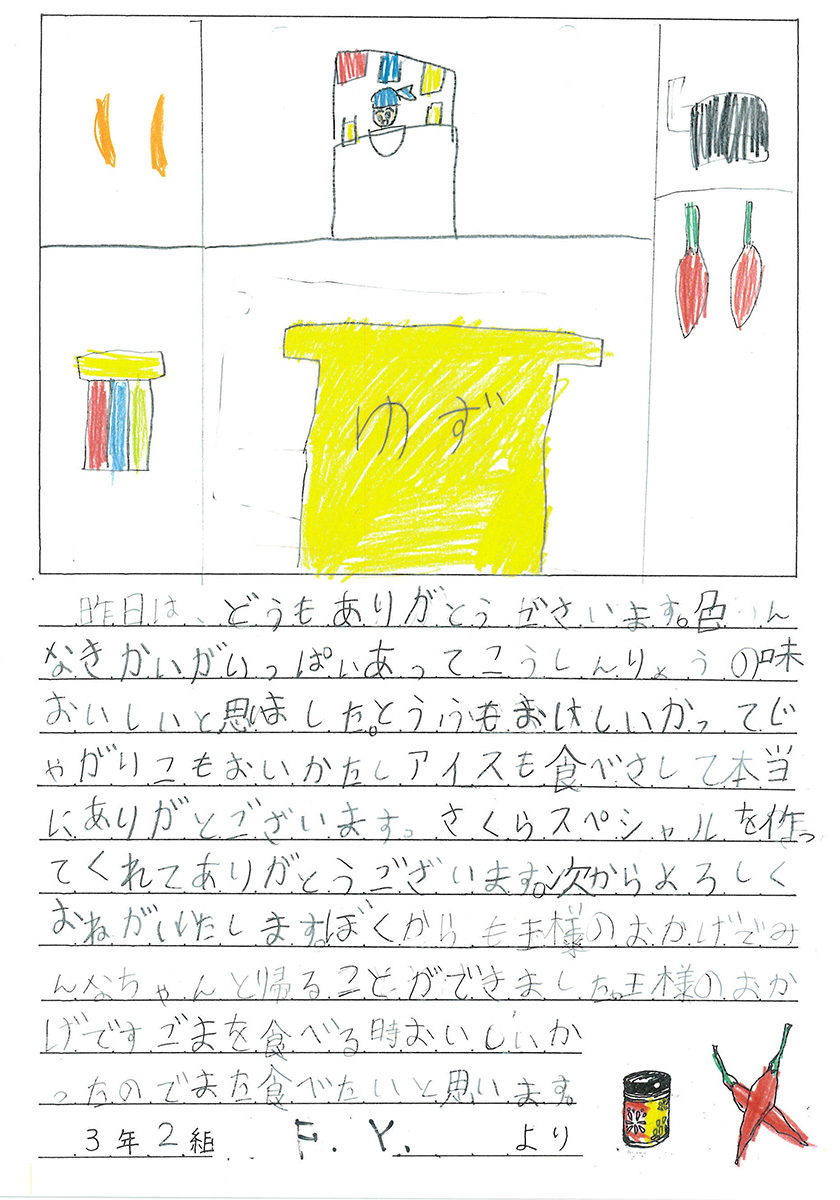 ゆず
昨日は、どうもありがとうございます。色んん
なきかいがいっぱいあってこうしんりょうの味
おいしいと思ました。とうふもおいしいかってじ
ゃがりこもおいかたしアイスも食べさして本当
にありがとございます。さくらスペシャルを作っ
てくれてありがとうございます。次からよろしく
おねがいいたします。ぼくからも王様のおかげでみ
んなちゃんと帰ることができました。王様のおか
げですごまを食べる時おいしいか
ったのでまた食べたいと思います。
3年2組 F.Y. より